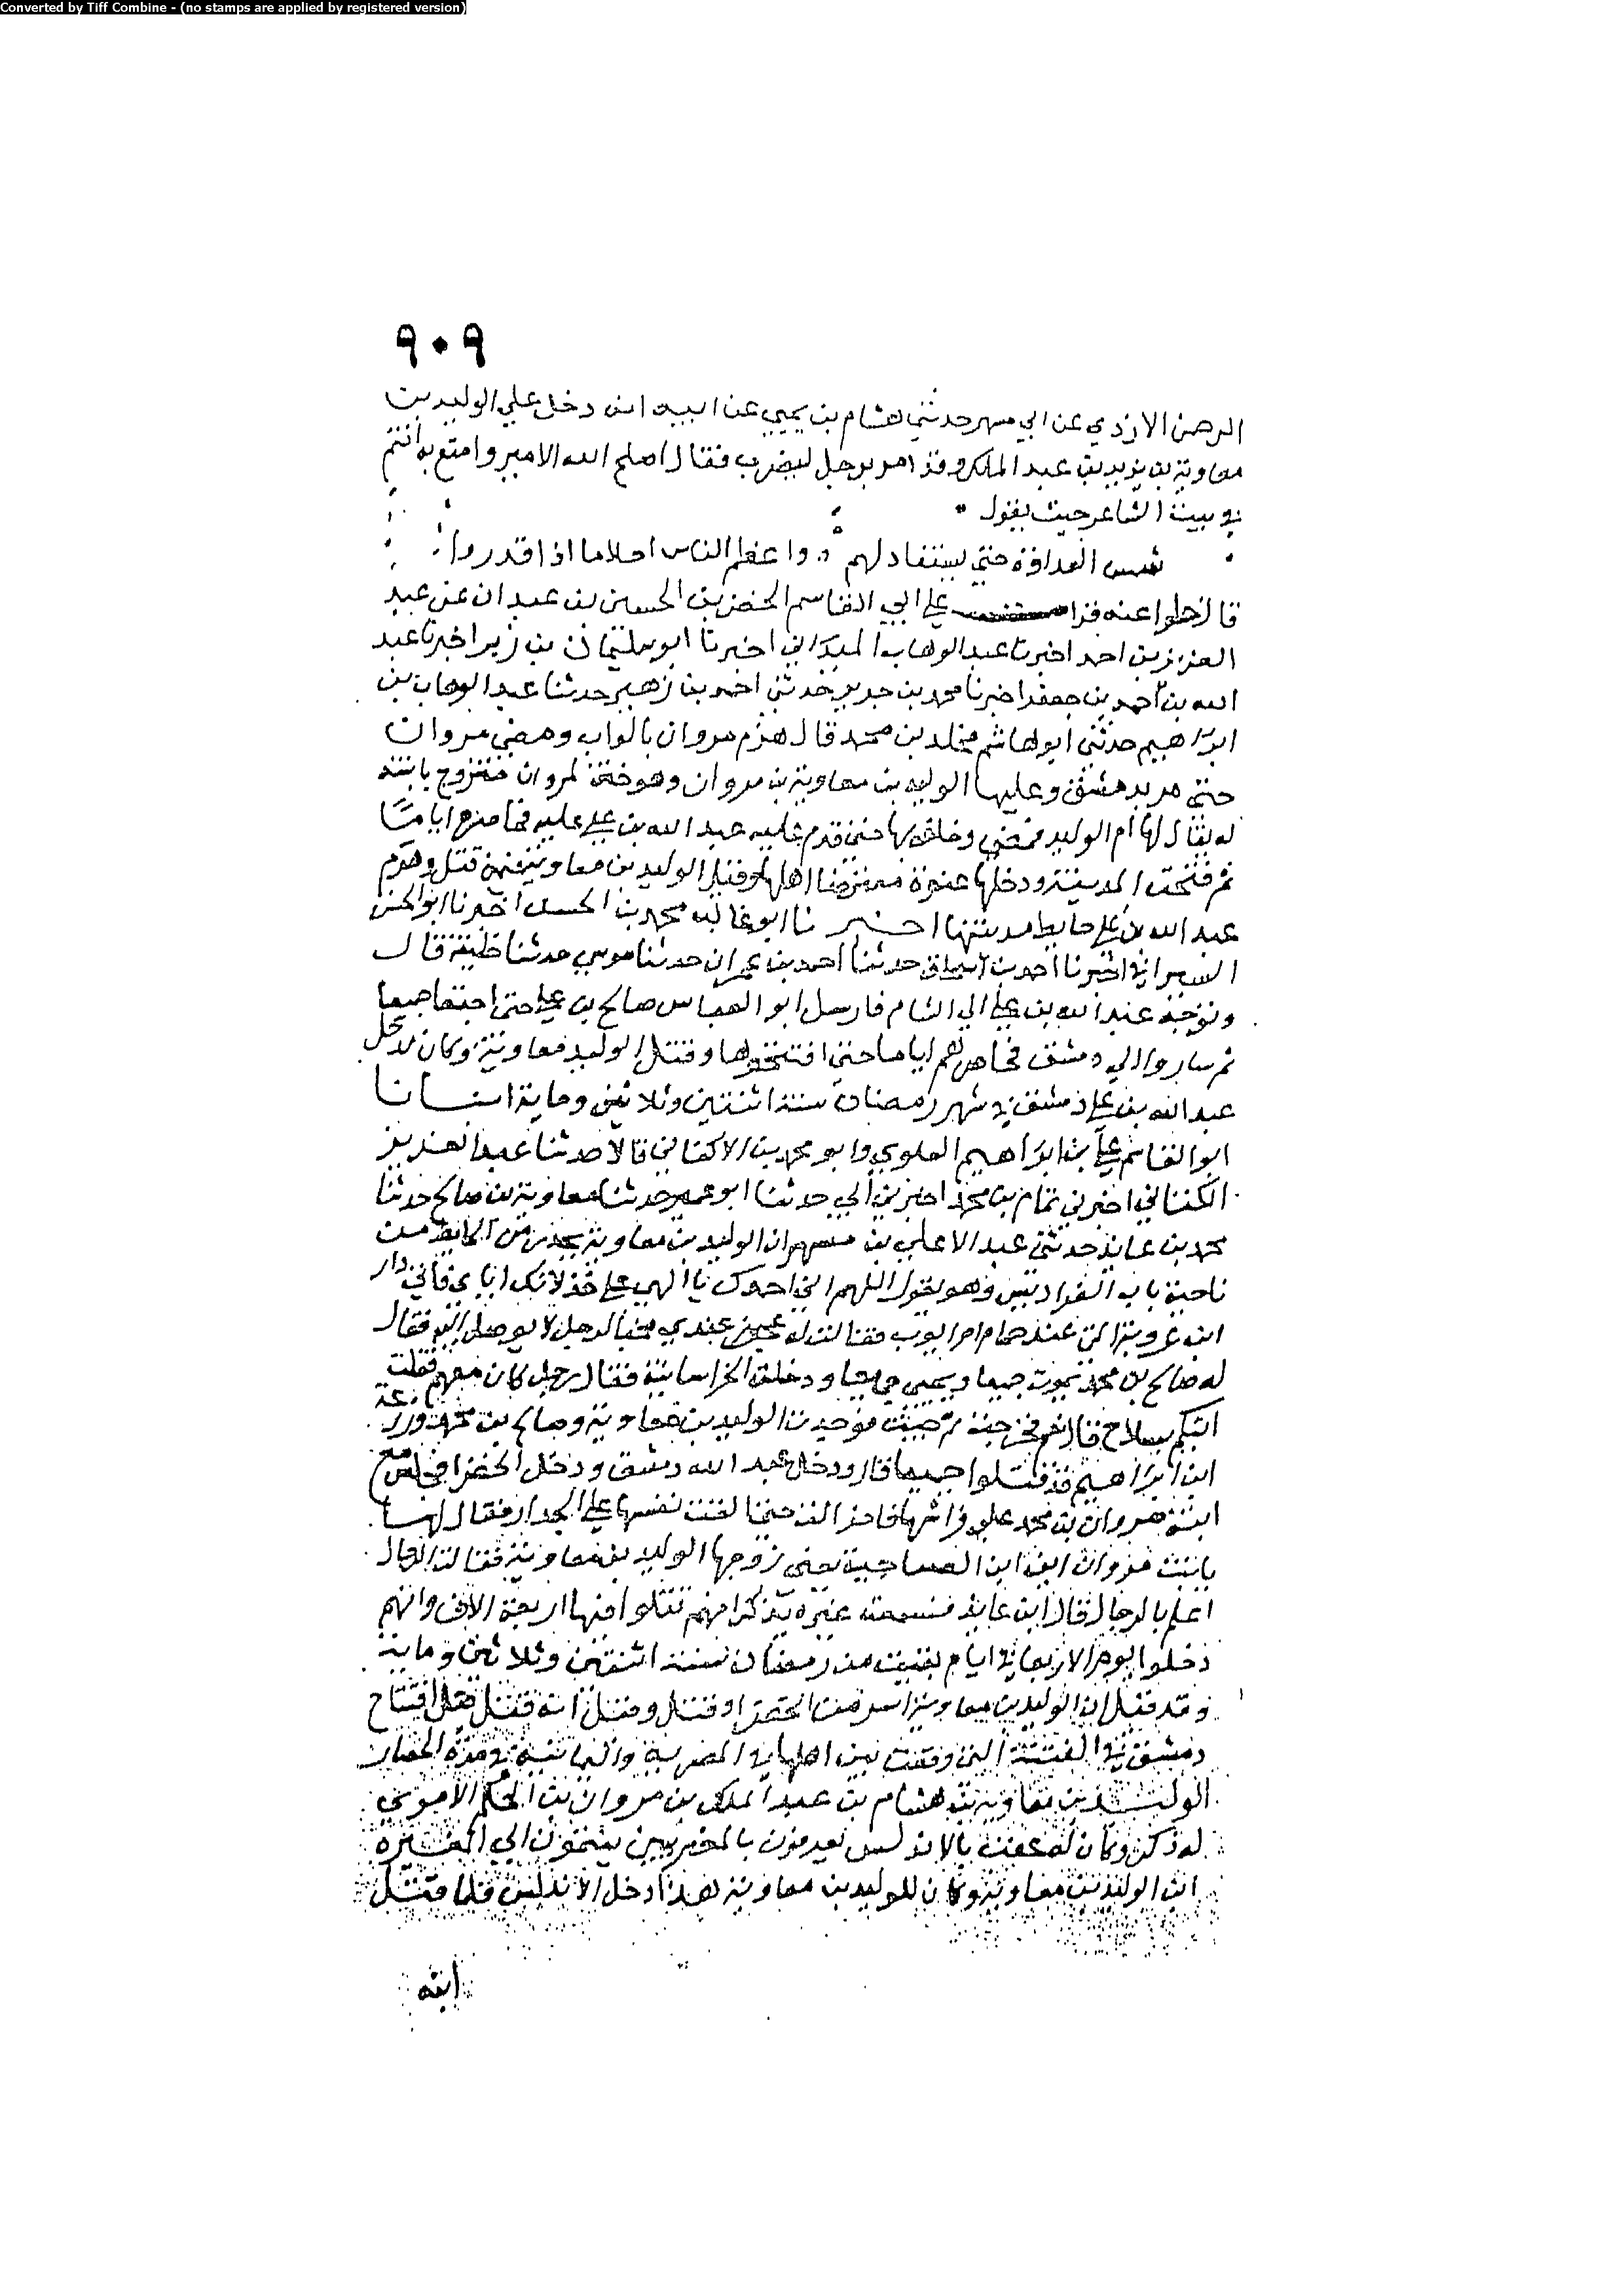 Converted by Tiff Combine - (no stamps are applied by registered version)
٩٠٩
الرحمن الازدي عن ابي مسهر حدثني هشام بن يحيي عن ابيه انه دخل علي الوليد بن
معاوية بن يزيد بن عبد الملك وقد امر برجل ليضرب فقال اصلح الله الامير وامتع به انتم
في بيت الشاعر حيث يقول
شمس العداوة حتي يستقاد لهم واعظم الناس احلاما اذا قدروا
قال خلوا عنه قرا علي ابي القاسم الخضر بن الحسين بن عبدان عن عبد
العزيز بن احمد اخبرنا عبد الوهاب الميداني اخبرنا ابو سليمان بن زبر اخبرنا عبد
الله بن احمد بن جعفر اخبرنا محمد بن جرير حدثني احمد بن زهير حدثنا عبد الوهاب بن
ابراهيم حدثني ابو هاشم مخلد بن محمد قال هزم مروان بالزاب ومضي مروان
حتي مر بدمشق وعليها الوليد بن معاوية بن مروان وهو ختن لمروان متزوج بابنة
له يقال لها ام الوليد فمضي وخلفه بها حتي قدم عليه عبد الله بن علي عليه فحاصره اياما
ثم فتحت المدينة ودخلها عنوة معترضا اهلها وقتل الوليد بن معاوية فيمن قتل وهدم
عبد الله بن علي حايط مدينتها اخبرنا ابو غالب محمد بن الحسن اخبرنا ابو الحسن
السيرافي اخبرنا احمد بن اسحاق حدثنا احمد بن عمران حدثنا موسي حدثنا خليفة قال
وتوجه عبد الله بن علي الي الشام فارسل ابو العباس صالح بن علي حتي اجتمعا جميعا
ثم ساروا الي دمشق فحاصرهم اياما حتي افتتحوها وقتل الوليد بن معاوية وكان مدخل
عبد الله بن علي دمشق في شهر رمضان سنة اثنتين وثلاثين وماية انبانا
ابو القاسم علي بن ابراهيم العلوي وابو محمد بن الاكفاني قالا حدثنا عبد العزيز
الكتاني اخبرني تمام بن محمد اخبرني ابي حدثنا ابو عمير حدثنا معاوية بن صالح حدثنا
محمد بن عايذ حدثني عبد الاعلي بن مسهر ان الوليد بن معاوية من الحايط من
ناحية باب الفراديس وهو يقول اللهم اني احمدك يا الهي علي خذلانك اياي فاتي دار
له صالح بن محمد نموت جميعا ونحيي جميعا ودخلت الخراسانية فقال رجل كان معهم فقلت
اتيكم بسلاح قال فخرجت ثم جيت فوجدت الوليد بن معاوية وصالح بن محمد وزرعة
ابن ابراهيم قد قتلوا جميعا قال ودخل عبد الله دمشق ودخل الخضرا فجلس مع
ابنة مروان بن محمد علي فراشها حتي القت نفسها علي الجدار فقال لها
يا بنت مروان اين ابن يعني زوجها الوليد بن معاوية فقالت الرجال
اعلم بالرجال قال ابن عايذ فسمعت غيره يذكر انهم قتلوا فيها اربعة الاف وانهم
دخلوا يوم الاربعا في ايام بقيت من رمضان سنة اثنتين وثلاثين وماية
وقد قيل ان الوليد بن معاوية اسر من الخضرا وقتل وقيل انه قتل قبل افتتاح
دمشق في الفتنة التي وقعت بين اهلها في المضرية واليمانية في مدة الحصار
الوليد بن معاوية بن هشام بن عبد الملك بن مروان بن الحكم الاموي
له ذكر وكان له عقب بالاندلس يعرفون ينتمون الي المغيرة
ابن الوليد بن معاوية وكان للوليد بن معاوية هذا دخل الاندلس فلما قتل
ابنه